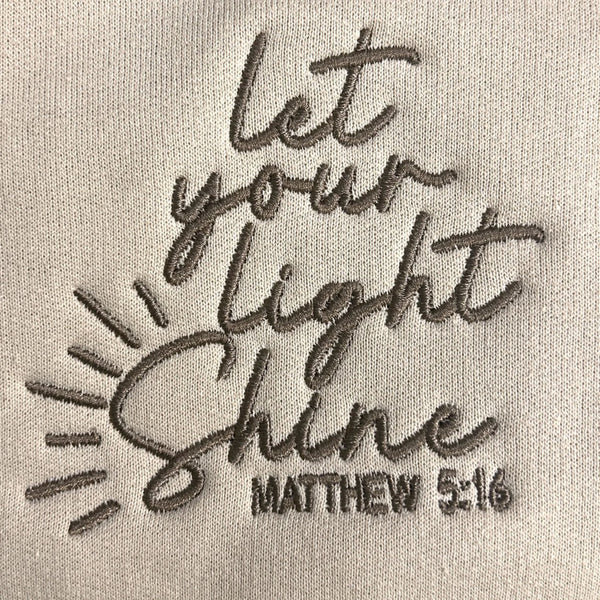 let
your
light
Shine
MATTHEW 5:16